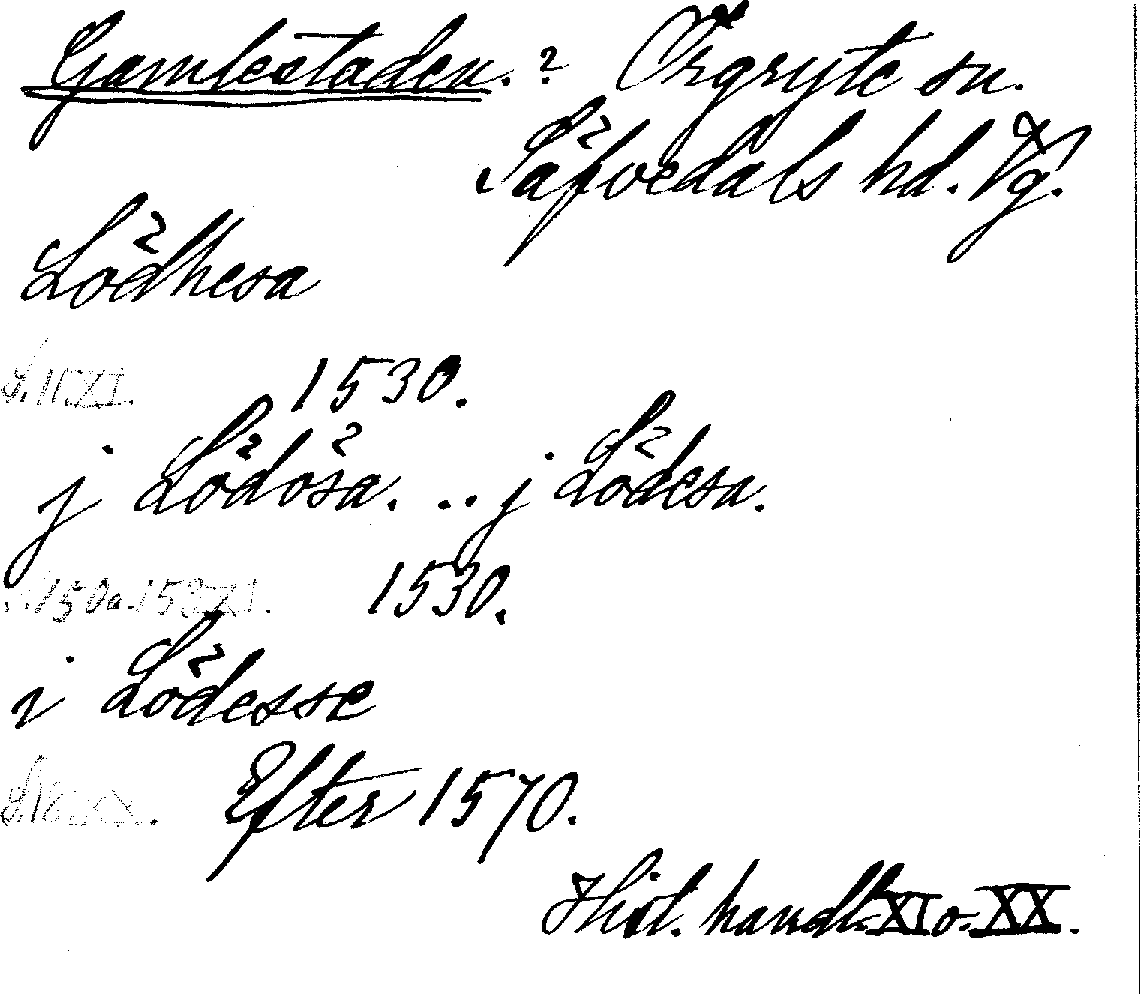 Gamlestaden.? Örgryte sn.
Säfvedals hd. Vg.
Lödhesa
1530.
j Lödösa. .. j Lödesa.
1530.
i Lödesse
Efter 1570.
Hist. handl. XI o. XX.